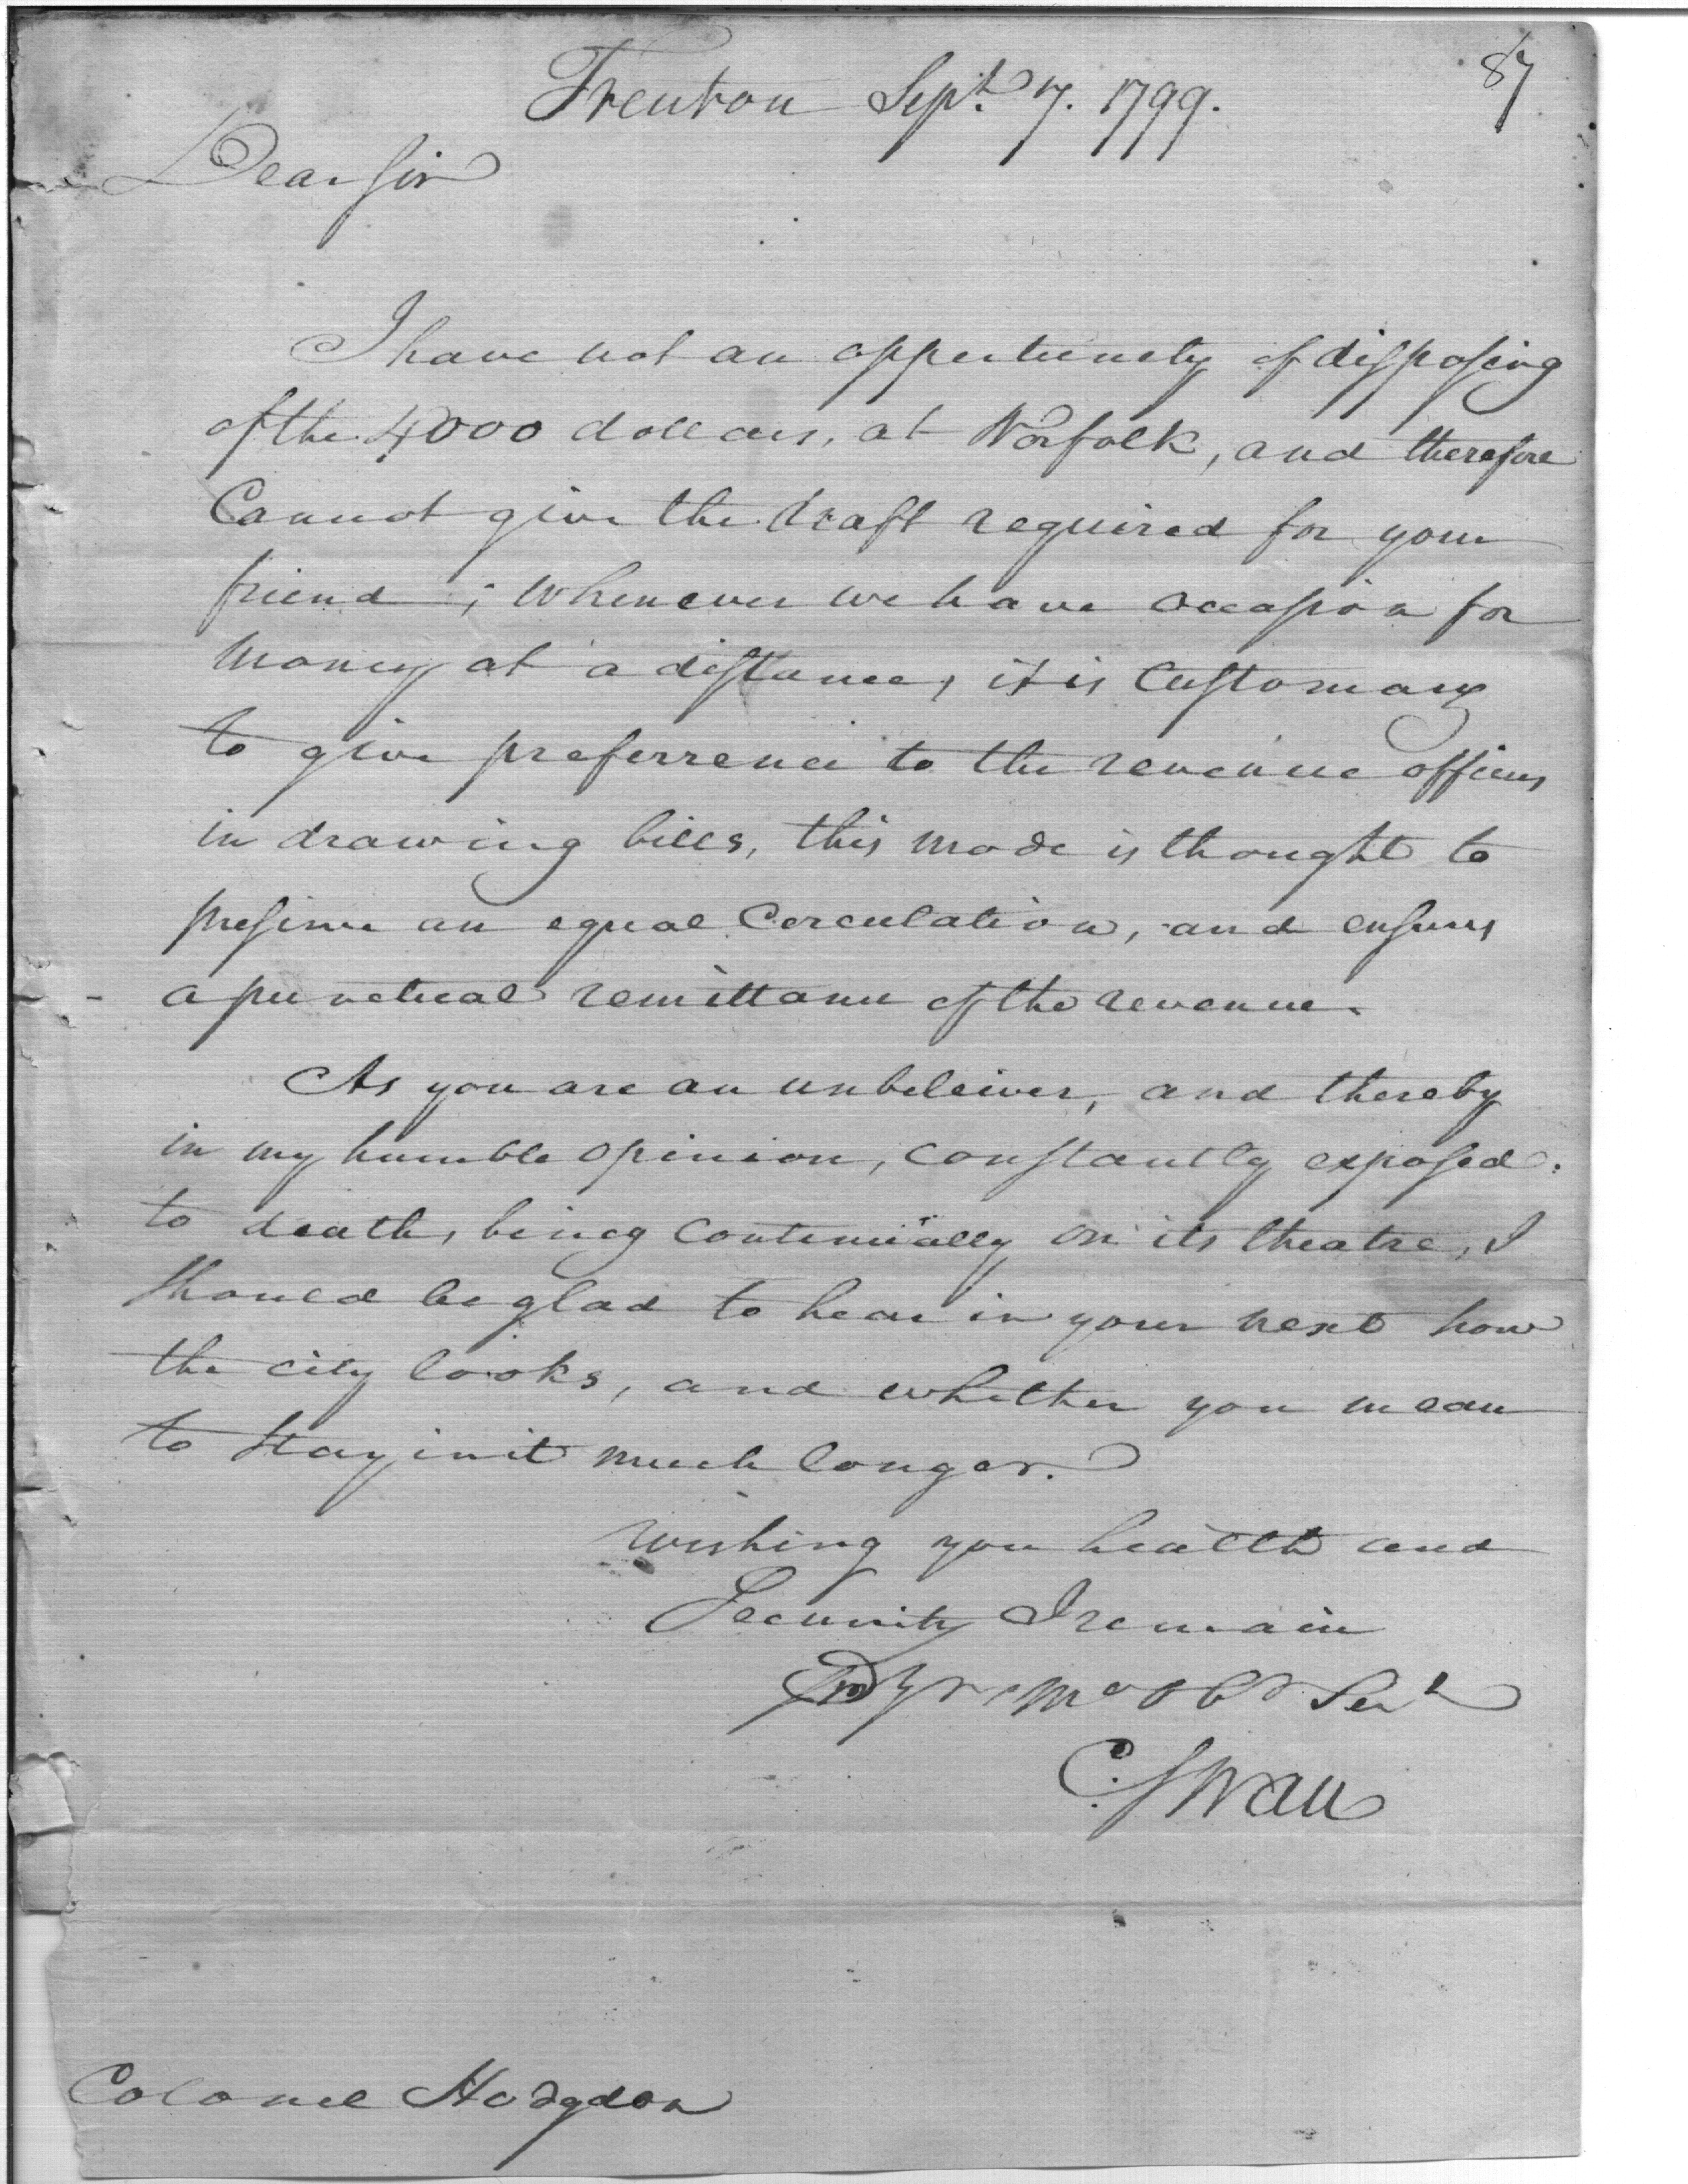 87
Trenton Sept. 7. 1799.
Dear sir
I have not an oppertunety of disposing
of the 4000 dollars, at Norfolk, and therefore
Cannot give the draft required for your
friend; Whenever we have occasion for
Money at a distance, it is Customary
to give preferrence to the revenue officers
in drawing bills, this mode is thought to
preserve an equal Cerculation, and ensures
a punctual remittance of the revenue.
As you are an unbeleiver, and thereby
in my humble opinion, constantly exposed
to death, being continually on its theatre, I
should be glad to hear in your next how
the city looks, and whether you mean
to stay in it much longer.
Wishing you health and
Security I remain
Yr Mo Ob Sert
C. Swan
Colonel Hodgdon